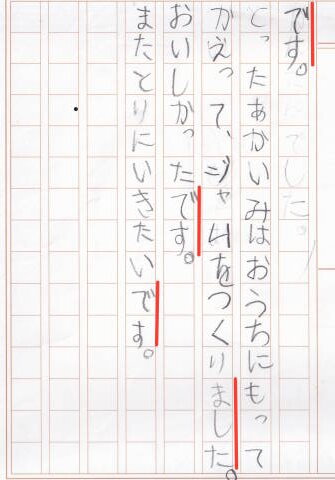 です。
とったあかいみはおうちにもって
かえって、ジャムをつくりました。
おいしかったです。
またとりにいきたいです。